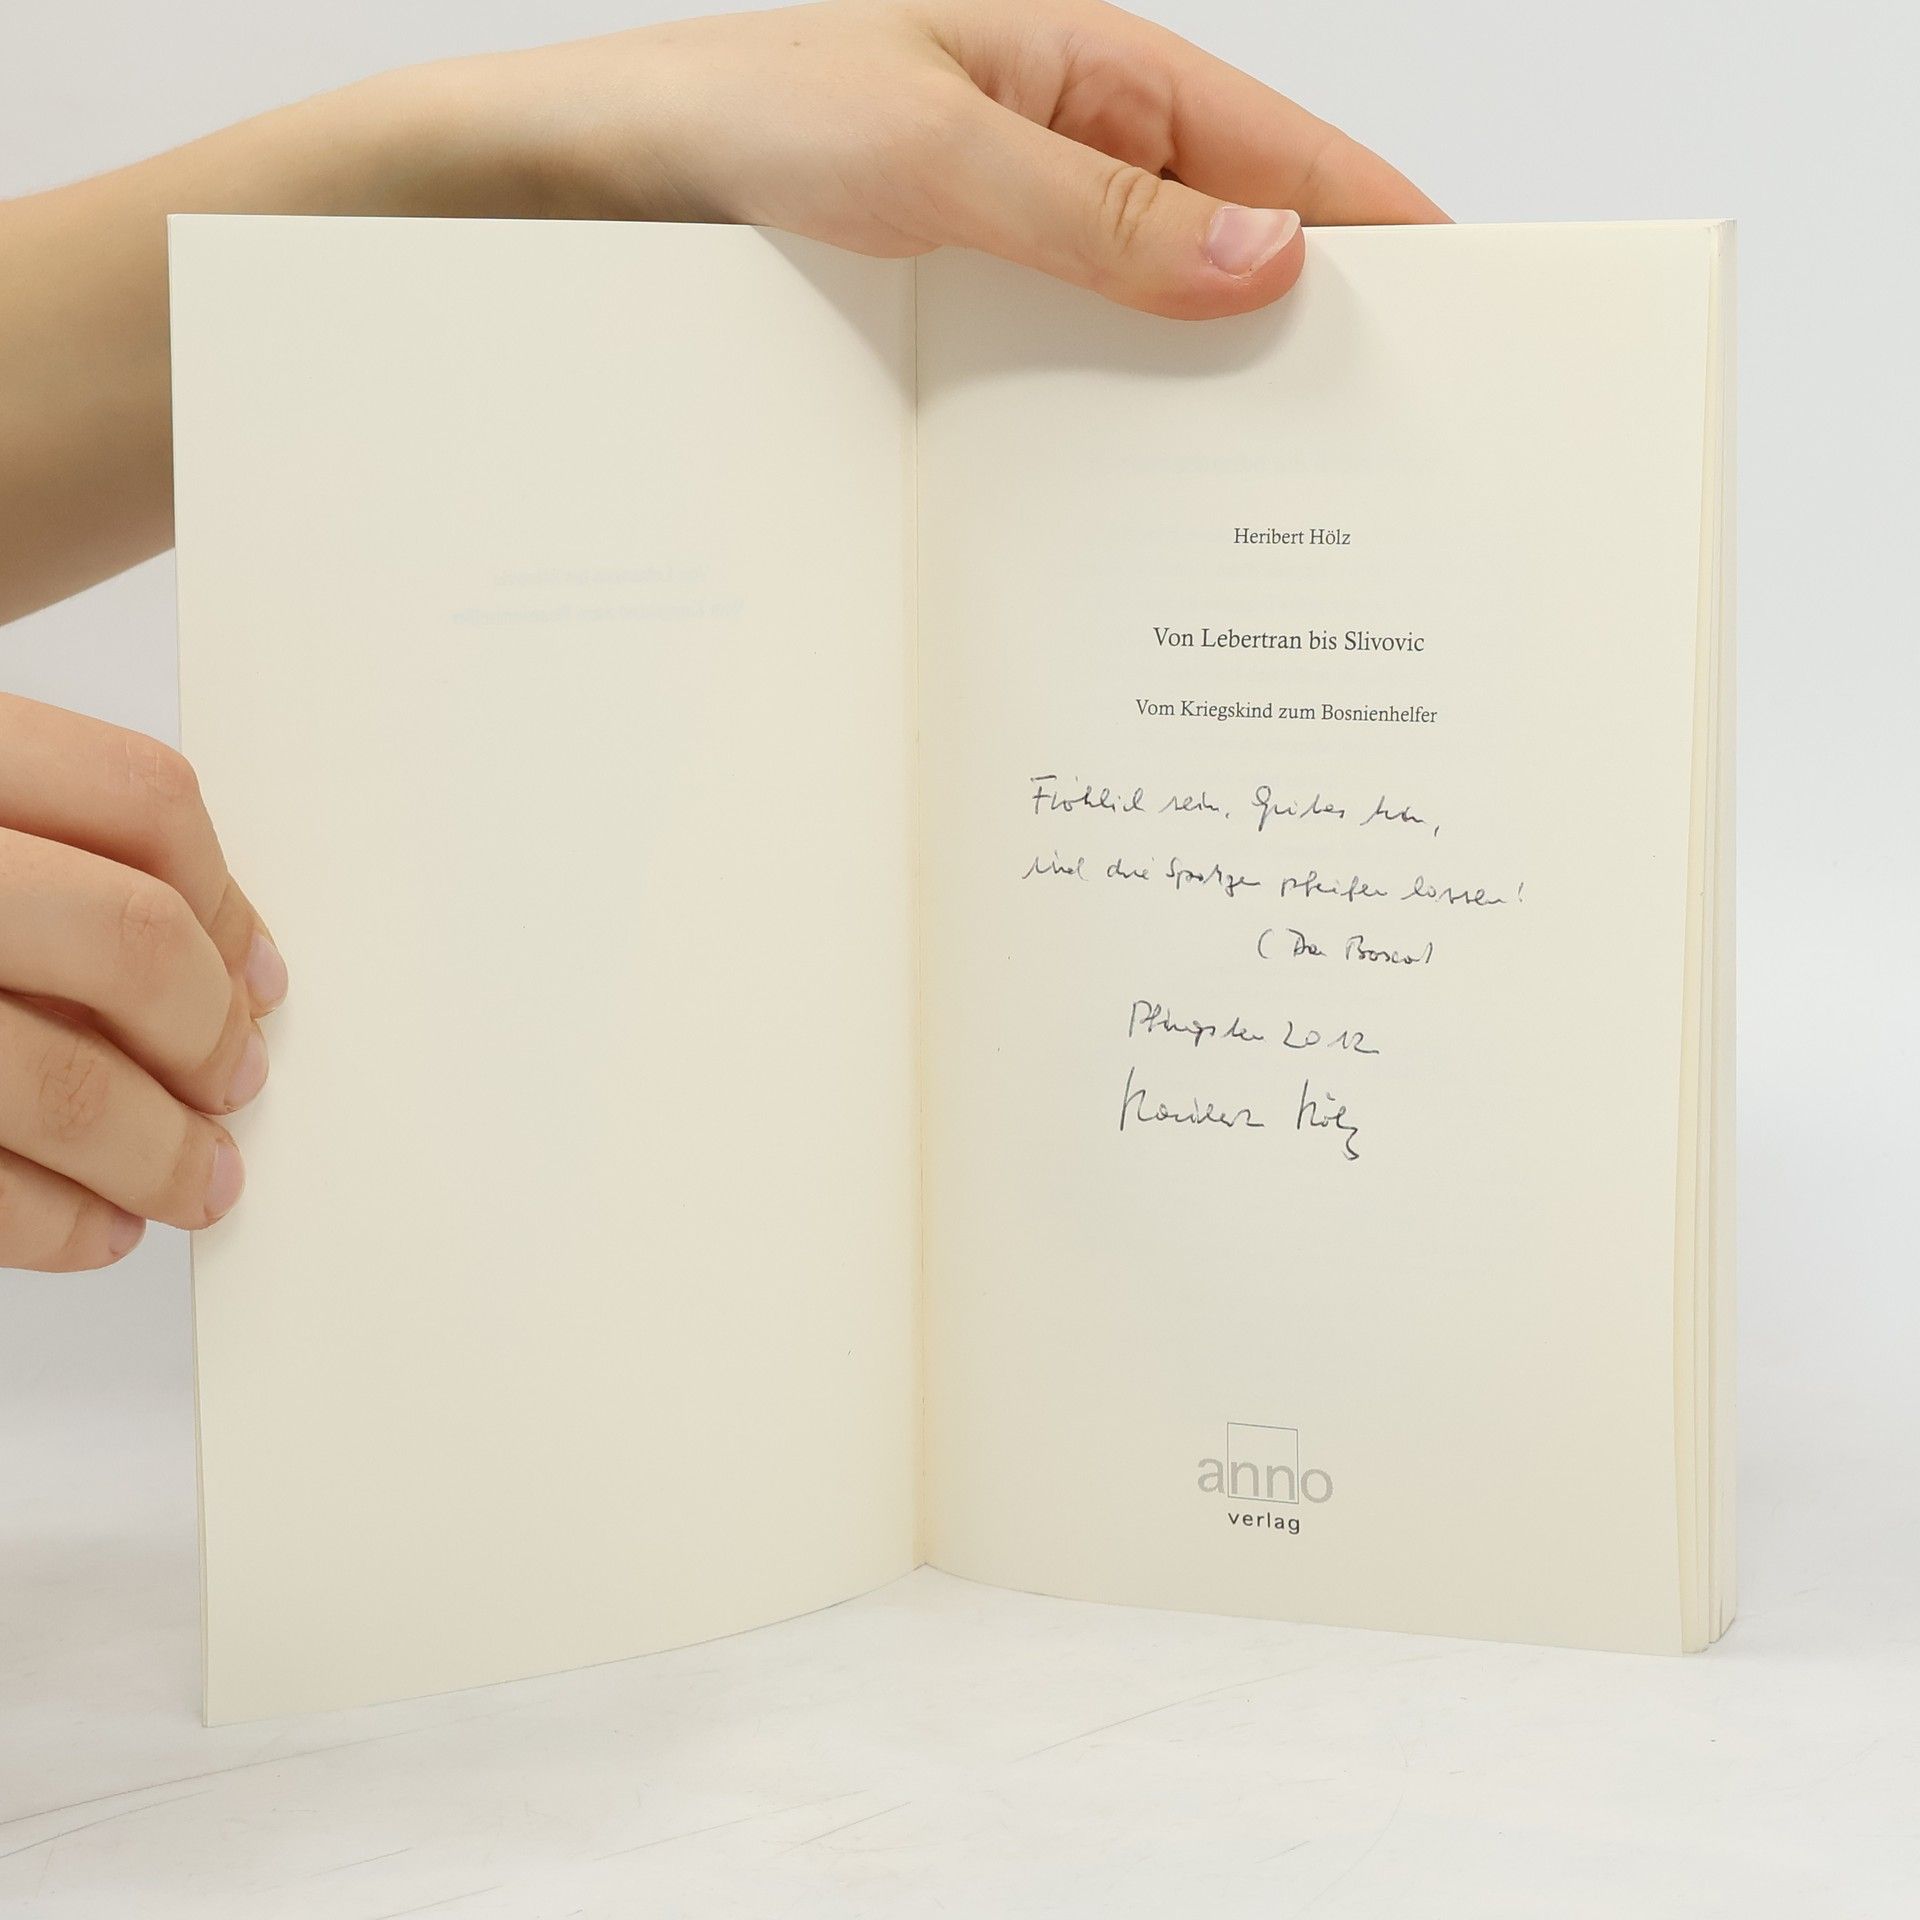 Heribert Hölz
Von Lebertran bis Slivovic
Vom Kriegskind zum Bosnienhelfer
Fröhlich sein, Gutes tun,
und die Spatzen pfeifen lassen!
(Don Bosco)
Pfingsten 2012
Heribert Hölz
anno
verlag